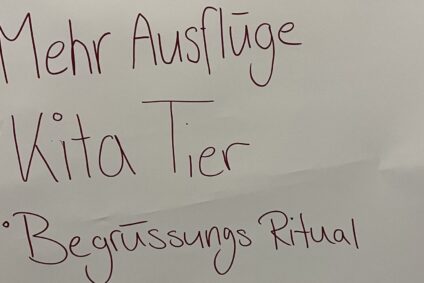 Mehr Ausflüge
Kita Tier
• Begrüssungs Ritual